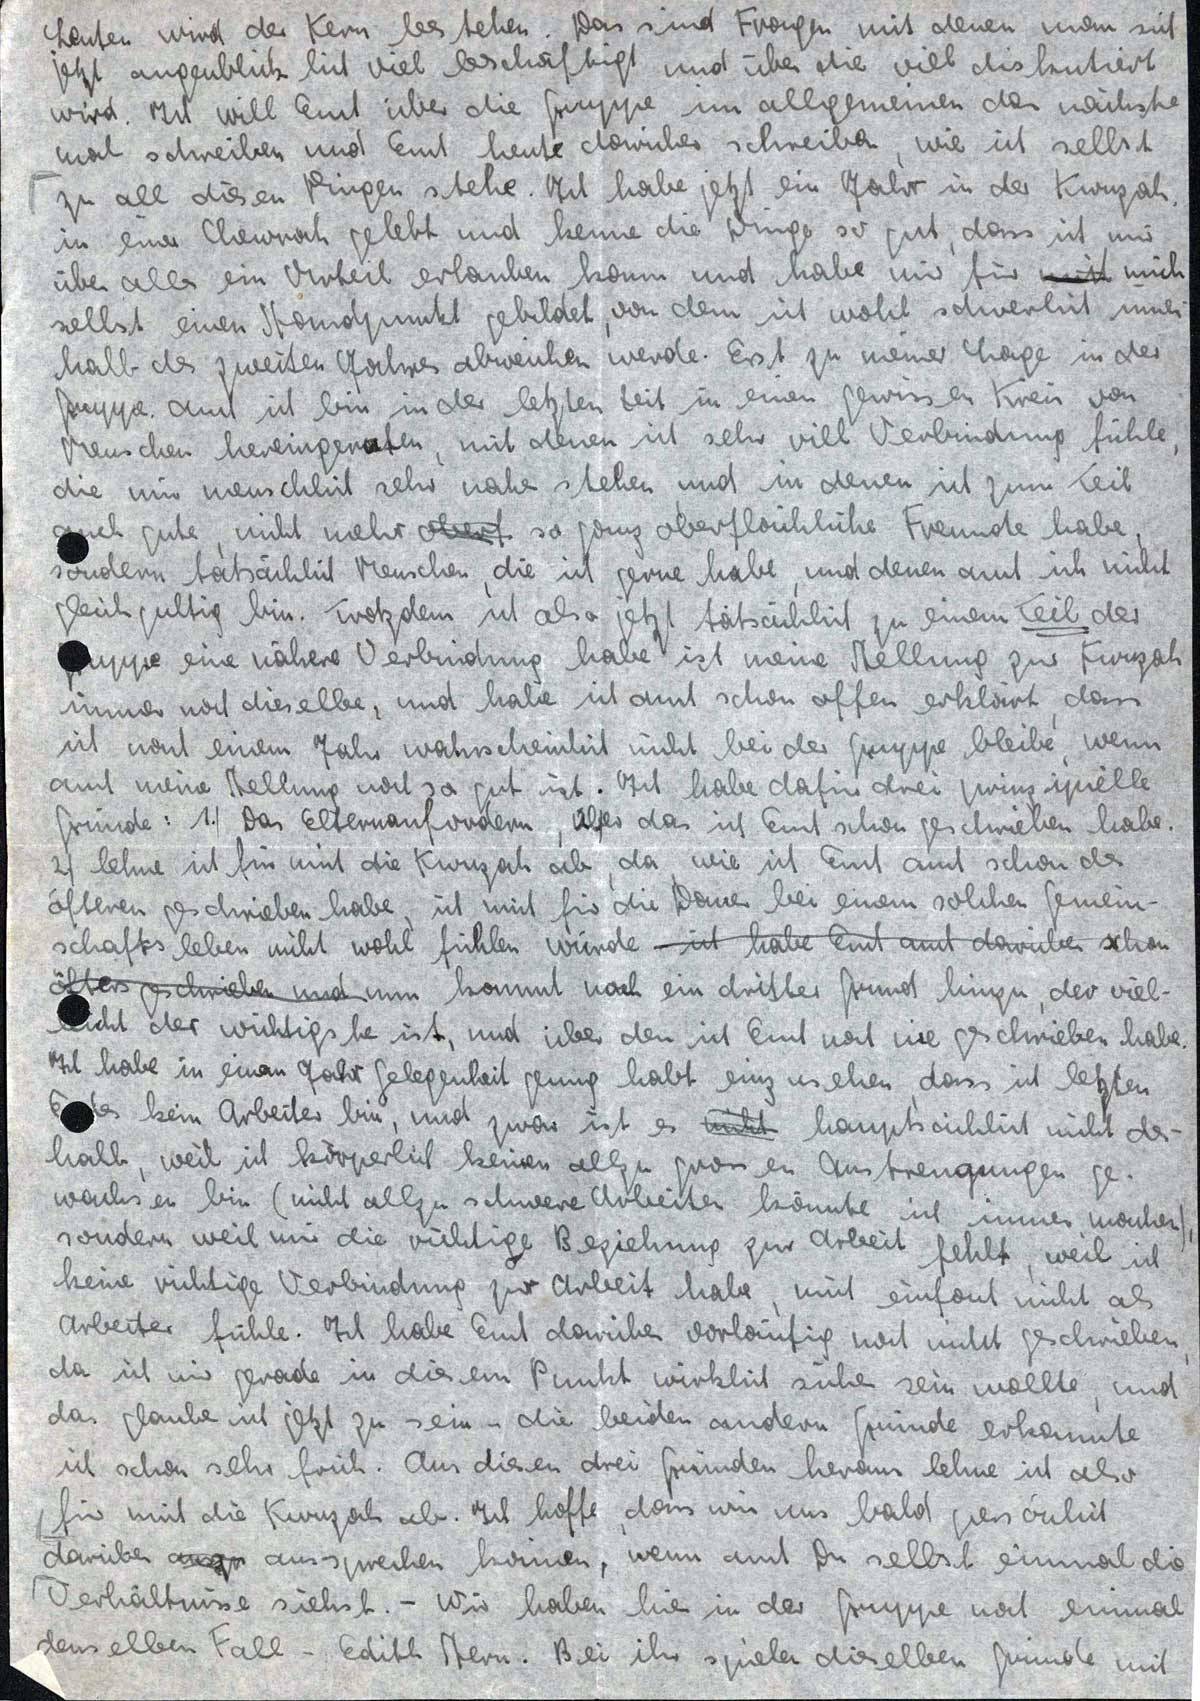 Leuten wird der Kern bestehen. Das sind Fragen mit denen man sich
jetzt augenblicklich viel beschäftigt und über die viel diskutiert
wird. Ich will Euch über die Gruppe im allgemeinen das nächste
mal schreiben und Euch heute darüber schreiben, wie ich selbst
zu all diesen Dingen stehe. Ich habe jetzt ein Jahr in der Kwuzah,
in einer Chewrah gelebt und kenne die Dinge so gut, dass ich mir
über alles ein Urteil erlauben kann und habe mir für mich
selbst einen Standpunkt gebildet, von dem ich wohl schwerlich inner-
halb des zweiten Jahres abweichen werde. Erst zu meiner Lage in der
Gruppe. Auch ich bin in der letzten Zeit in einen gewissen Kreis von
Menschen hereingeraten, mit denen ich sehr viel Verbindung fühle,
die mir menschlich sehr nahe stehen und in denen ich zum Teil
auch gute, nicht mehr oberf. so ganz oberflächliche Freunde habe,
sondern tatsächlich Menschen, die ich gerne habe, und denen auch ich nicht
gleichgultig bin. Trotzdem ich also jetzt tatsächlich zu einem Teil der
Gruppe eine nähere Verbindung habe ist meine Stellung zur Kwuzah
immer noch dieselbe, und habe ich auch schon offen erklärt, dass
ich nach einem Jahr wahrscheinlich nicht bei der Gruppe bleibe, wenn
auch meine Stellung noch so gut ist. Ich habe dafür drei prinzipielle
Gründe: 1.) Das Elternanfordern, über das ich Euch schon geschrieben habe.
2) lehne ich für mich die Kwuzah ab, da, wie ich Euch auch schon des
öfteren geschrieben habe, ich mich für die Dauer bei einem solchen Gemein-
schaftsleben nicht wohl fühlen würde ich habe Euch auch darüber schon
öfters geschrieben und nun kommt noch ein dritter Grund hinzu, der viel-
leicht der wichtigste ist, und über den ich Euch noch nie geschrieben habe.
Ich habe in einem Jahr Gelegenheit genug habt einzusehen, dass ich letzten
Endes kein Arbeiter bin, und zwar ist es nicht hauptsächlich nicht des-
halb, weil ich körperlich keinen allzu grossen Anstrengungen ge-
wachsen bin (nicht allzu schwere Arbeiten könnte ich immer machen),
sondern weil mir die richtige Beziehung zur Arbeit fehlt, weil ich
keine richtige Verbindung zur Arbeit habe, mich einfach nicht als
Arbeiter fühle. Ich habe Euch darüber vorläufig noch nicht geschrieben,
da ich mir gerade in diesem Punkt wirklich sicher sein wollte, und
das glaube ich jetzt zu sein – die beiden andern Gründe erkannte
ich schon sehr früh. Aus diesen drei Gründen heraus lehne ich also
für mich die Kwuzah ab. Ich hoffe, dass wir uns bald persönlich
darüber aussprechen können, wenn auch Du selbst einmal die
Verhältnisse siehst. – Wir haben hier in der Gruppe noch einmal
denselben Fall – Edith Stern. Bei ihr spielen dieselben Gründe mit